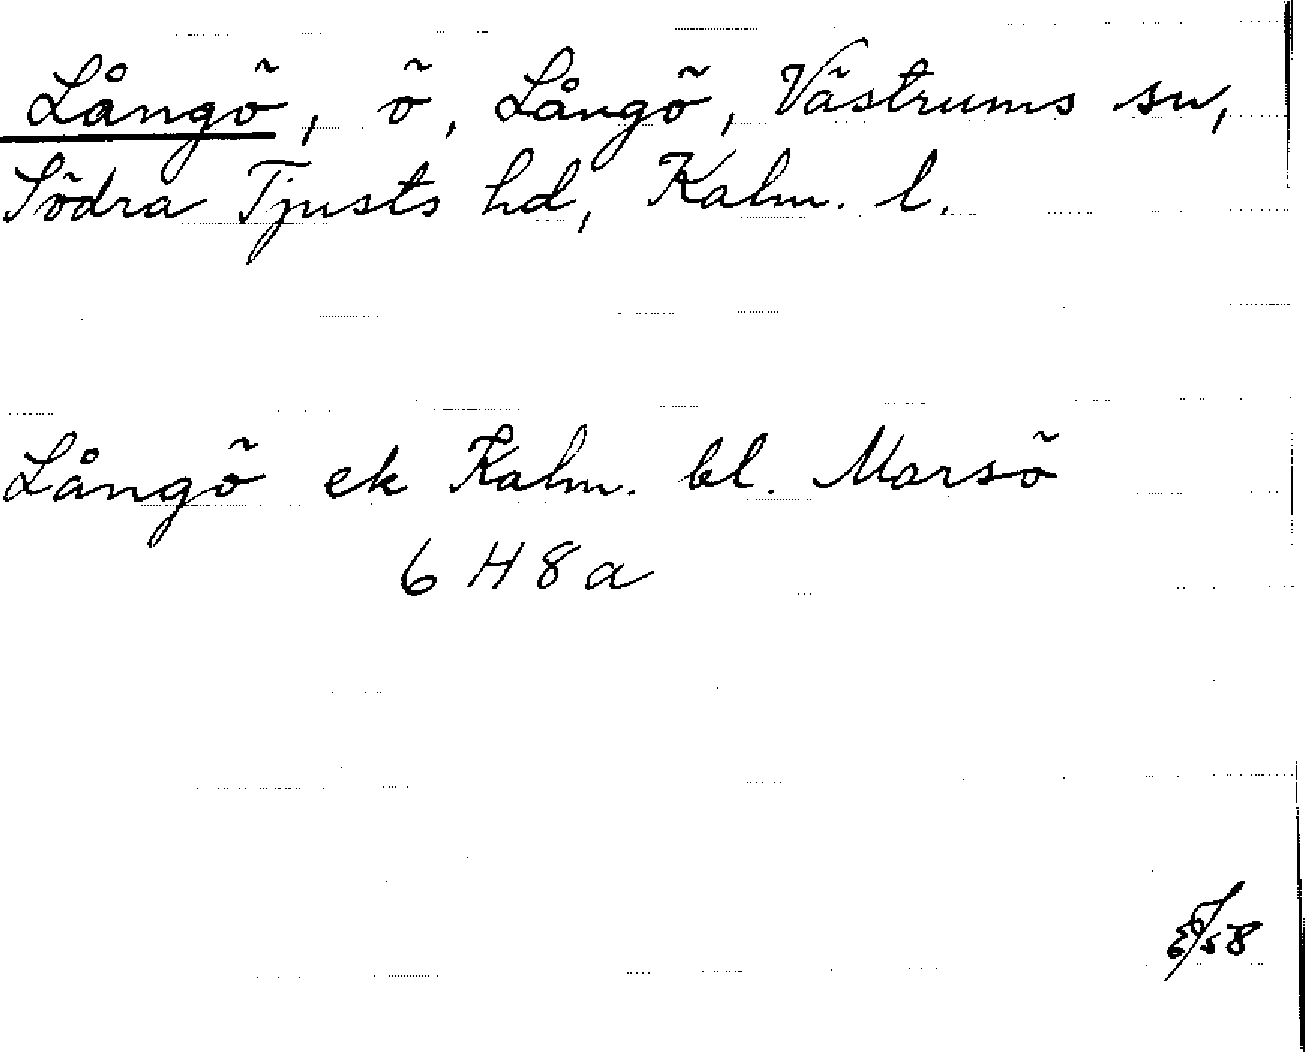 Långö, ö, Långö, Västrums sn,
Södra Tjusts hd, Kalm. l.
Långö ek Kalm. bl. Marsö
6 H 8 a